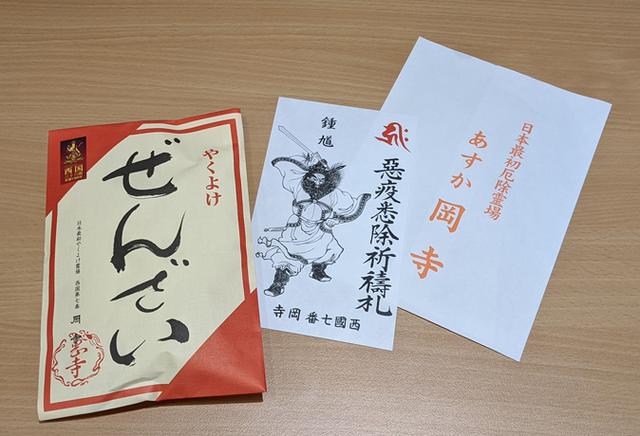 やくよけ
ぜんざい
西国
日本最初やくよけ霊場 西国第七番
岡寺
鍾馗
惡疫悉除祈禱札
西國七番岡寺
日本最初厄除霊場
あすか岡寺